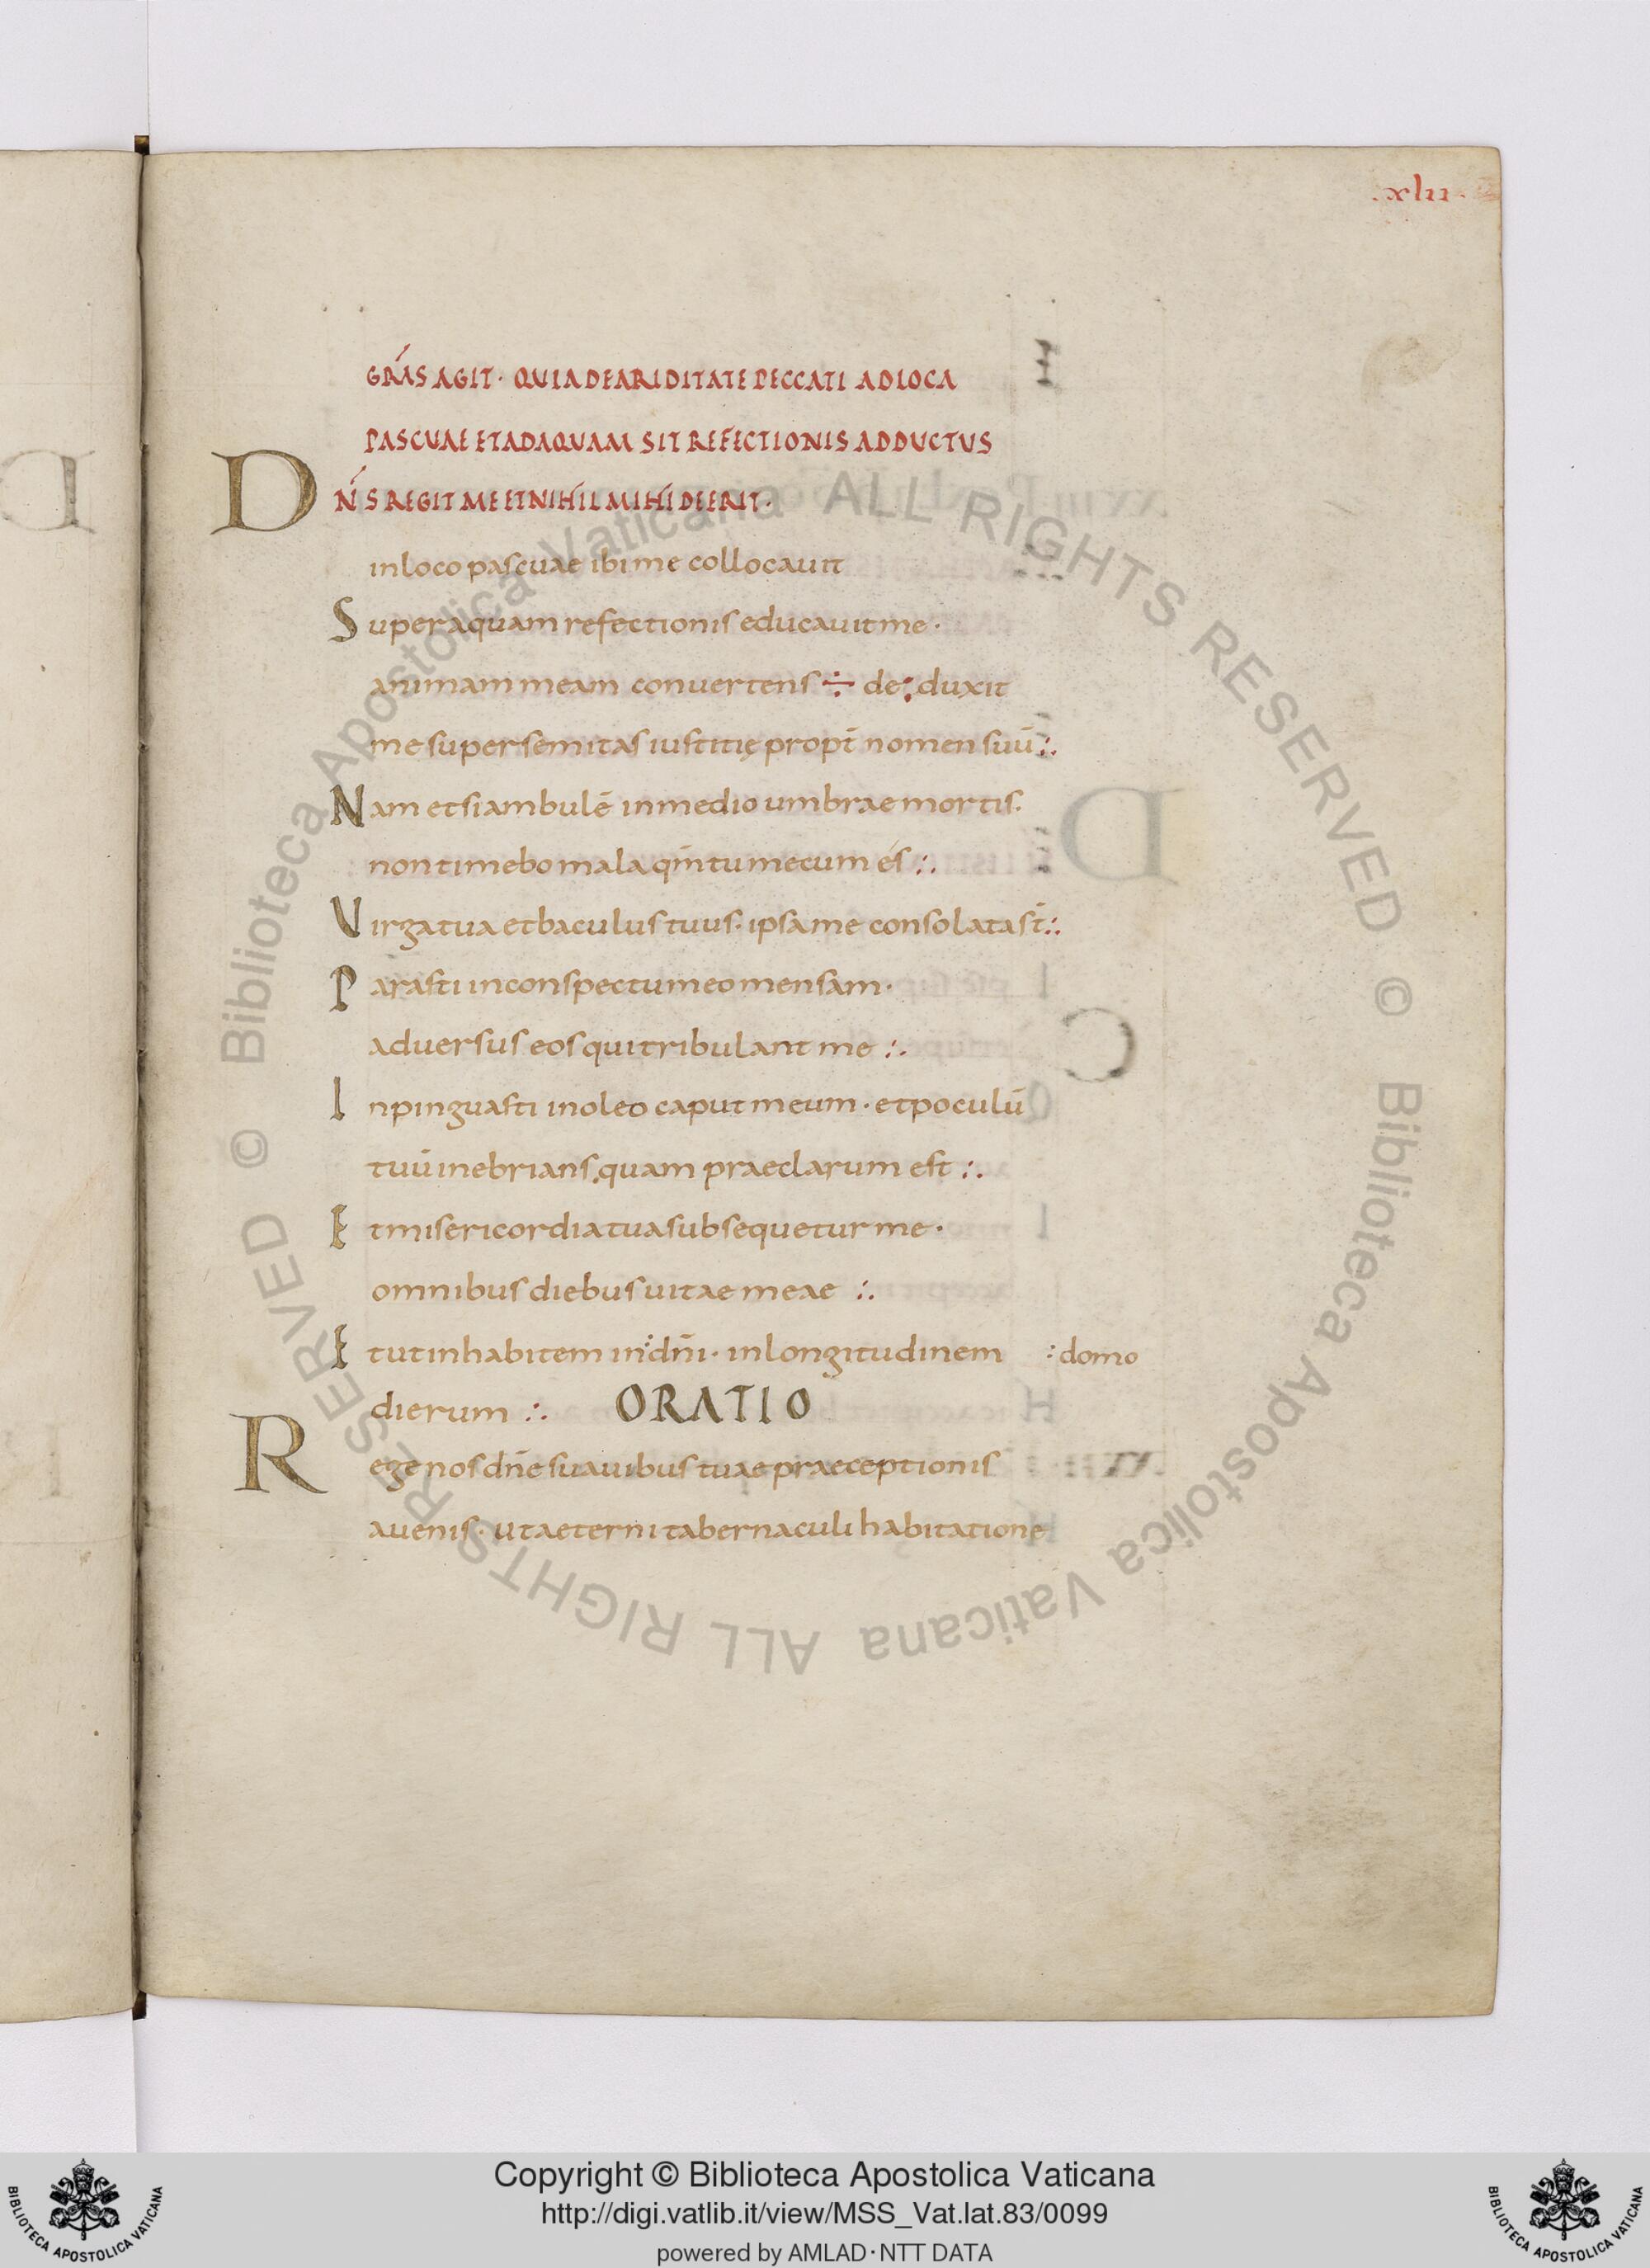 .xlii.
GRAS AGIT · QUIA DE ARIDITATE PECCATI AD LOCA
PASCUAE ET AD AQUAM SIT REFECTIONIS ADDUCTUS
DNS REGIT ME ET NIHIL MIHI DEERIT ·
in loco pascuae ibi me collocavit
Super aquam refectionis educavit me ·
animam meam convertens ÷ de: duxit
me super semitas iustitię propt̄ nomen suū :.
Nam et si ambulē in medio umbrae mortis.
non timebo mala qm̄ tu mecum es :.
Virga tua et baculus tuus · ipsa me consolata st̄ :.
Parasti in conspectu meo mensam ·
adversus eos qui tribulant me :.
Inpinguasti in oleo caput meum · et poculū
tuū inebrians. quam praeclarum est :.
Et misericordia tua subsequetur me ·
omnibus diebus vitae meae :.
Et ut inhabitem in : dn̄i · in longitudinem : domo
dierum :. ORATIO
Rege nos dn̄e suavibus tuae praeceptionis
avenis · ut aeterni tabernaculi habitatione
© Biblioteca Apostolica Vaticana ALL RIGHTS RESERVED
© Biblioteca Apostolica Vaticana ALL RIGHTS RESERVED
Copyright © Biblioteca Apostolica Vaticana
http://digi.vatlib.it/view/MSS_Vat.lat.83/0099
powered by AMLAD·NTT DATA
BIBLIOTECA APOSTOLICA VATICANA
BIBLIOTECA APOSTOLICA VATICANA